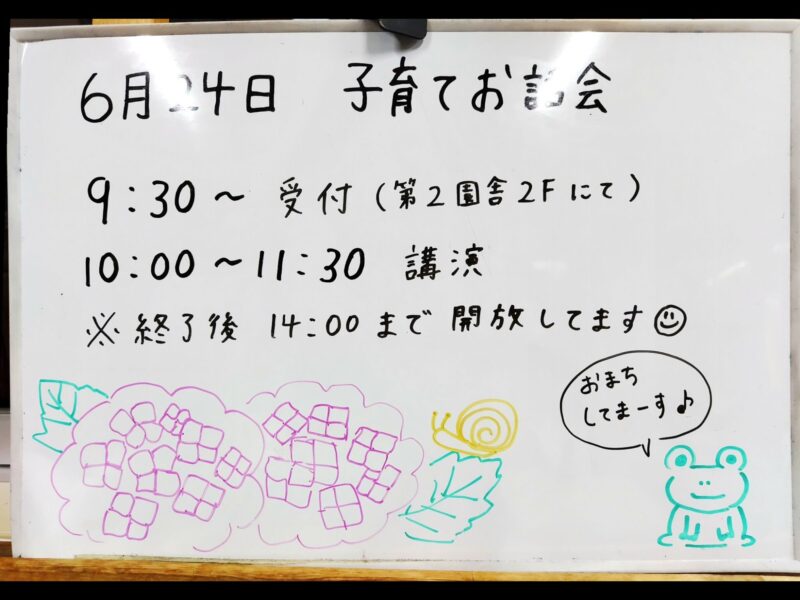 6月24日 子育てお話会
9:30～ 受付(第2園舎2Fにて)
10:00～11:30 講演
※終了後 14:00まで開放してます☺
おまち
してまーす♪